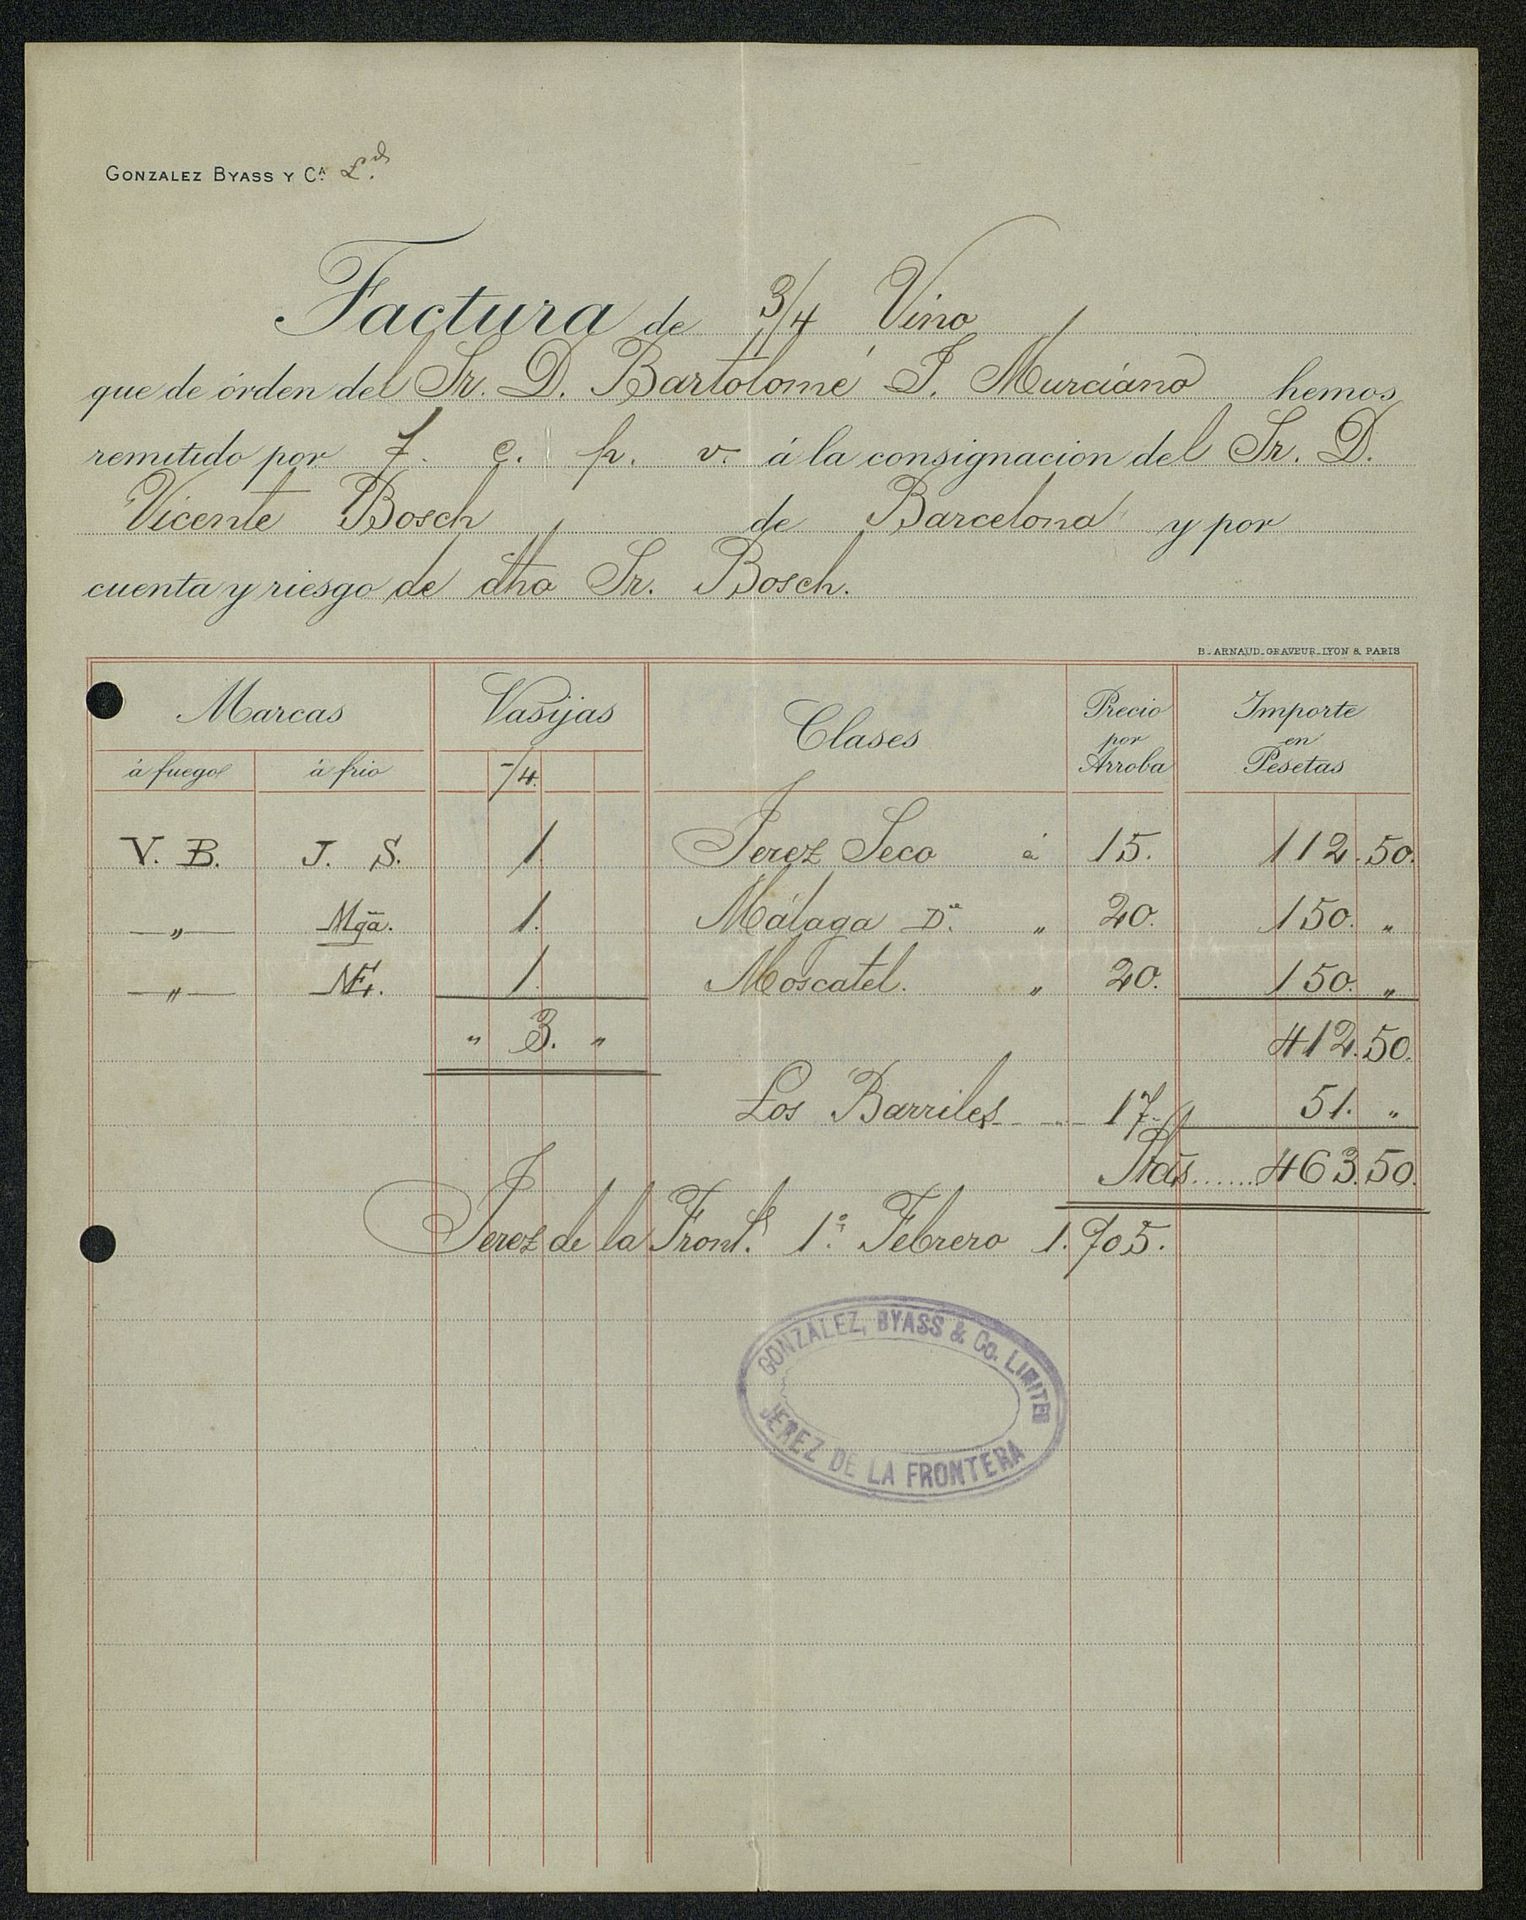 GONZALEZ BYASS Y Cᴬ. Lᵈ.
Factura de 3/4 Vino
que de órden del Sr. D. Bartolomé J. Murciano hemos
remitido por f. c. p. v. á la consignacion del Sr. D.
Vicente Bosch de Barcelona y por
cuenta y riesgo de dho Sr. Bosch.
B. ARNAUD. GRAVEUR. LYON & PARIS
Marcas Vasijas Clases Precio por Arroba Importe en Pesetas
á fuego á frio -/4.
V. B. J. S. 1 Jerez Seco á 15. 112.50.
—„— Mgã. 1. Málaga Dᵉ. „ 20. 150. „
—„— 1. Moscatel. „ 20. 150. „
„ 3. „ 412.50.
Los Barriles 17 51. „
Ptas...... 463.50.
Jerez de la Front.ª 1.º Febrero 1.905.
GONZALEZ, BYASS & Co. LIMITED
JEREZ DE LA FRONTERA